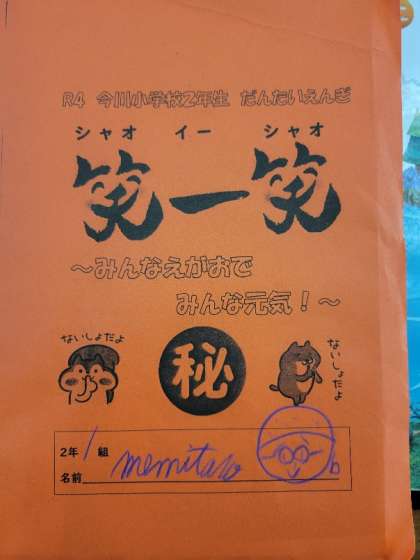 R4 今川小学校2年生 だんたいえんぎ
シャオ イー シャオ
笑一笑
～みんなえがおで
みんな元気！～
ないしょだよ
秘
ないしょだよ
2年 1 組
名前 memitaro